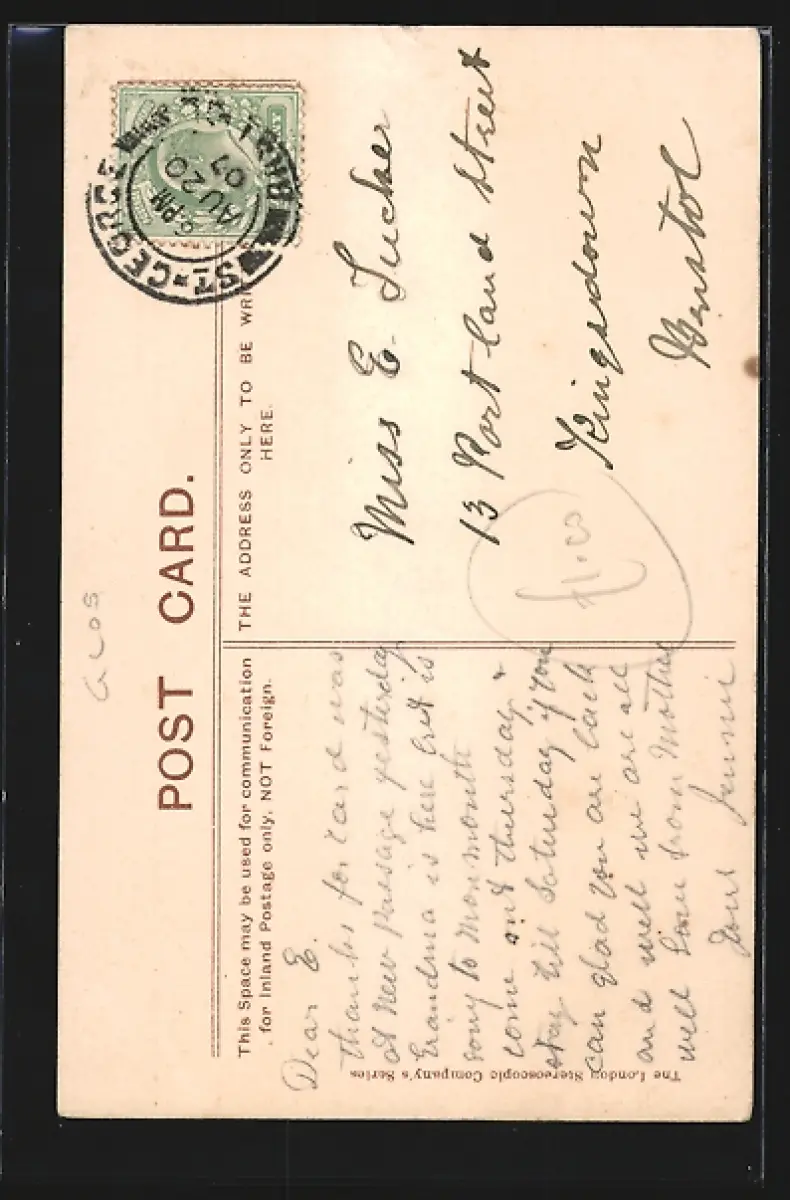 GLOS
POST CARD.
This Space may be used for communication
for Inland Postage only, NOT Foreign.
THE ADDRESS ONLY TO BE WRI
HERE.
ST. GEORGE
6 PM
AU 20
07
BRISTOL
Dear E.
thanks for card was
at New Passage yesterday
Grandma is here but is
going to Monmouth
come out thursday &
stay till Saturday if you
can glad you are back
and well we are all
well Love from Mother
Yours Jennie
Miss E. Tucker
13 Portland Street
Kingsdown
Bristol
The London Stereoscopic Company's Series